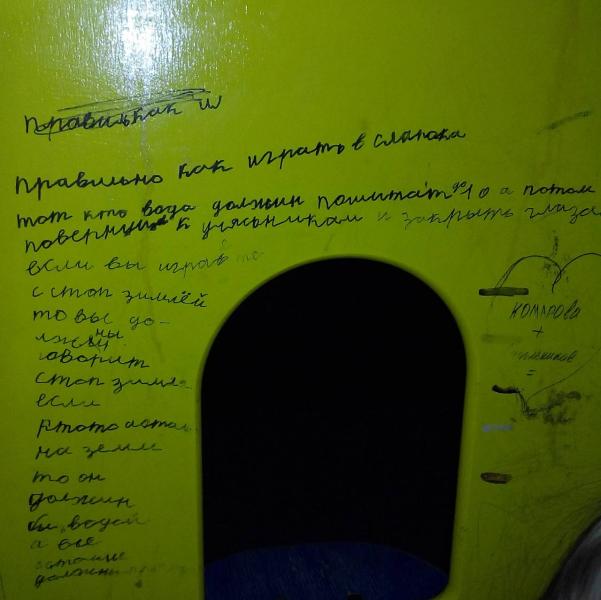 правилькак и
правильно как играть в слапока
тот кто вода должин пошитать до 10 а потом
повернуца к учясьникам и закрыть глаза
если вы играв
с стоп зимлёй
то вы до-
лжны
говорит
стоп зимля
если
ктото
на земле
то он
должин
бы водой
а все
должны
КОМАРОВА
+
=